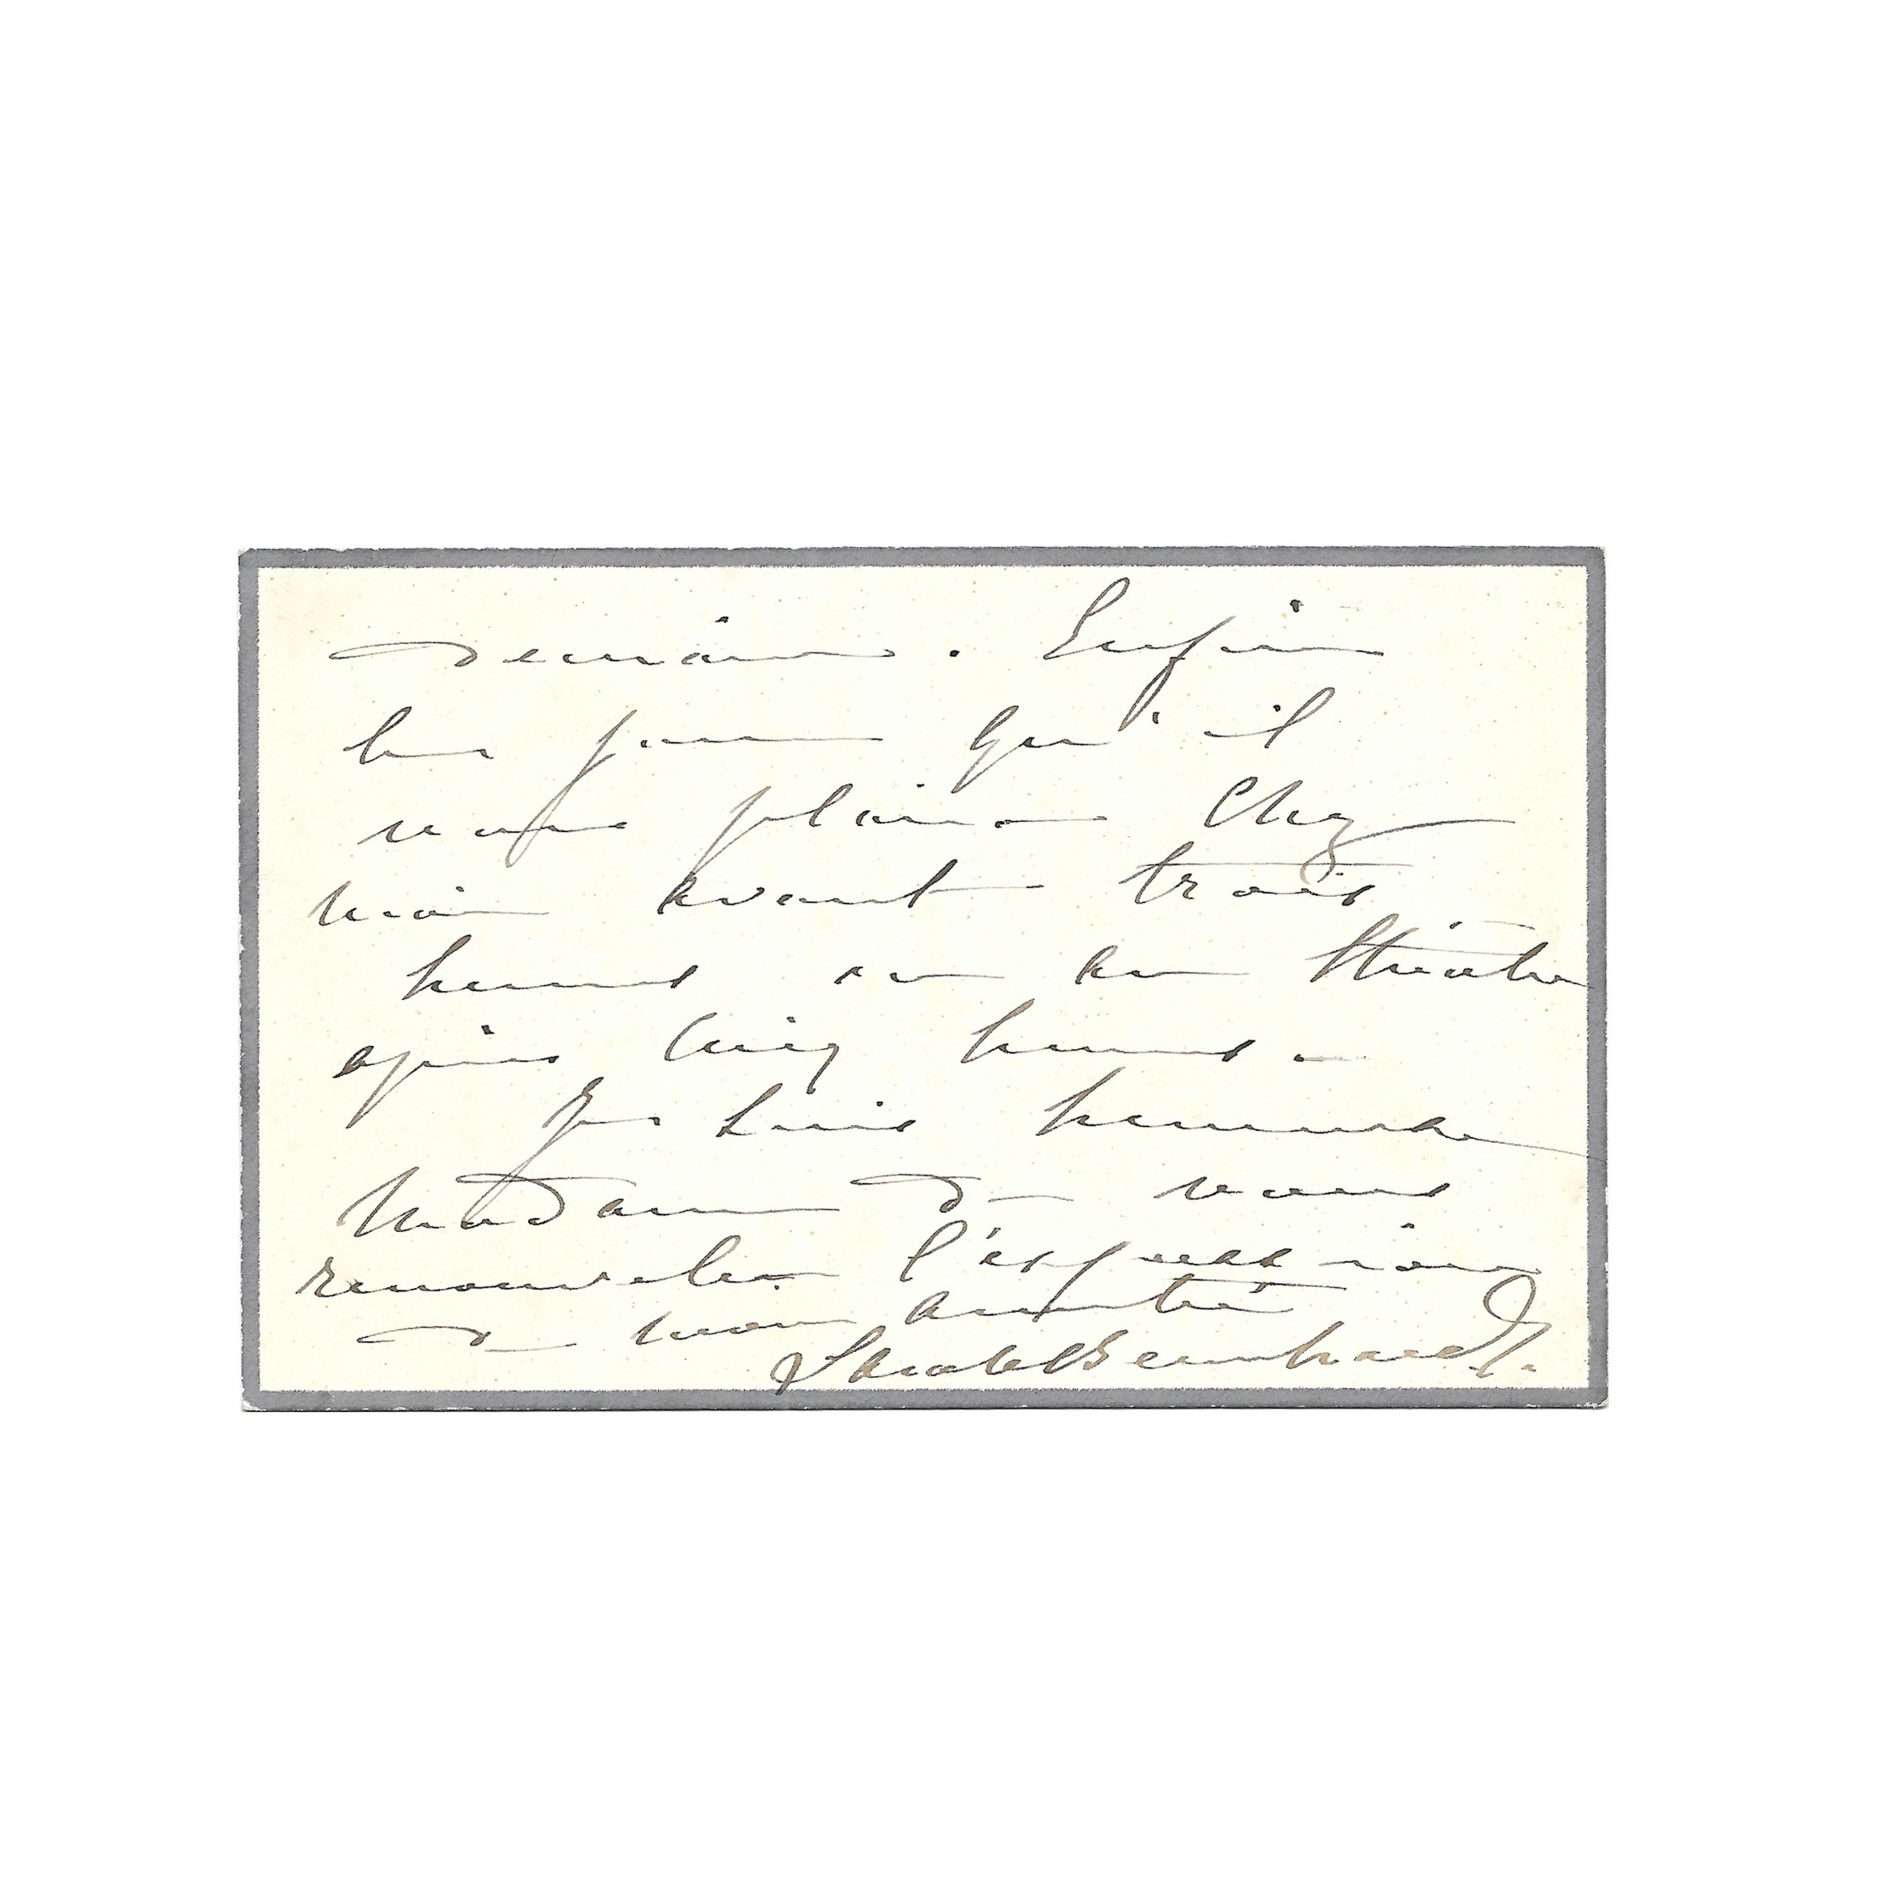 demain. Enfin
le jour qu'il
vous plaira Chez
moi avant trois
heures ou au théâtre
après cinq heures -
Je suis heureuse
Madame de vous
renouveler l'expression
de mon amitié
Sarah Bernhardt.